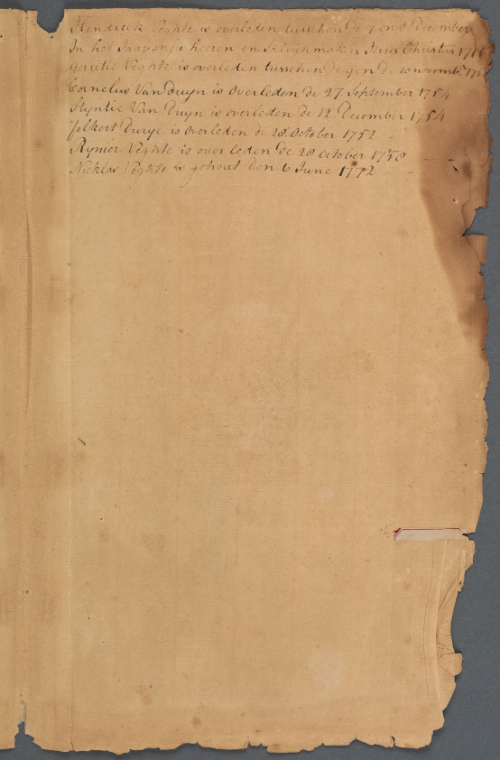 Hendrick Vechte is overleden tusschen de 7 en 8 December
In het Jaar onse heeren en Salighmaker Jesus Christus 1716
Gerritie Vechte is overleden tusschen de 9 en de 10 novemb
Cornelus Van Duyn is overleden de 27 September 1754
Styntie Van Duyn is overleden de 12 December 1754
Volkert Durye is overleden de 28 October 1752
Rynier Vechte is over leden de 28 october 1758
Nicklas Vechte is gehout den 6 June 1772